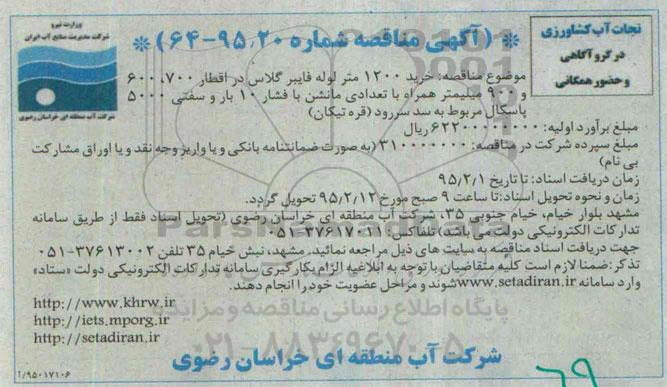 نجات آب کشاورزی
در گرو آگاهی
و حضور همگانی
وزارت نیرو
شرکت مدیریت منابع آب ایران
شرکت آب منطقه ای خراسان رضوی
* (آگهی مناقصه شماره ۲۰-۹۵-۶۴) *
موضوع مناقصه: خرید ۱۲۰۰ متر لوله فایبر گلاس در اقطار ۷۰۰، ۶۰۰
و ۹۰۰ میلیمتر همراه با تعدادی مانشن با فشار ۱۰ بار و سفتی ۵۰۰۰
پاسکال مربوط به سد سررود (قره تیکان)
مبلغ برآورد اولیه: ۶۲۲۰۰۰۰۰۰۰۰ ریال
مبلغ سپرده شرکت در مناقصه: ۳۱۰۰۰۰۰۰۰۰ (به صورت ضمانتنامه بانکی و یا واریز وجه نقد و یا اوراق مشارکت
بی نام)
زمان دریافت اسناد: تا تاریخ ۹۵/۲/۱
زمان و نحوه تحویل اسناد: تا ساعت ۹ صبح مورخ ۹۵/۲/۱۲ تحویل گردد.
مشهد بلوار خیام، خیام جنوبی ۳۵، شرکت آب منطقه ای خراسان رضوی (تحویل اسناد فقط از طریق سامانه
تدارکات الکترونیکی دولت می باشد) تلفاکس: ۳۷۶۱۷۰۱۱-۰۵۱
جهت دریافت اسناد مناقصه به سایت های ذیل مراجعه نمائید. مشهد، نبش خیام ۳۵ تلفن ۳۷۶۱۳۰۰۲-۰۵۱
تذکر: ضمنا لازم است کلیه متقاضیان با توجه به ابلاغیه الزام بکارگیری سامانه تدارکات الکترونیکی دولت «ستاد»
وارد سامانه www.setadiran.ir شوند و مراحل عضویت خود را انجام دهند.
http://www.khrw.ir
http://iets.mporg.ir
http://setadiran.ir
پایگاه اطلاع رسانی مناقصه و مزایده
۰۲۱-۸۸۳۴۹۶۷۰-۵
شرکت آب منطقه ای خراسان رضوی
۹۵۰۱۷۱۰۶/آ
۶۹